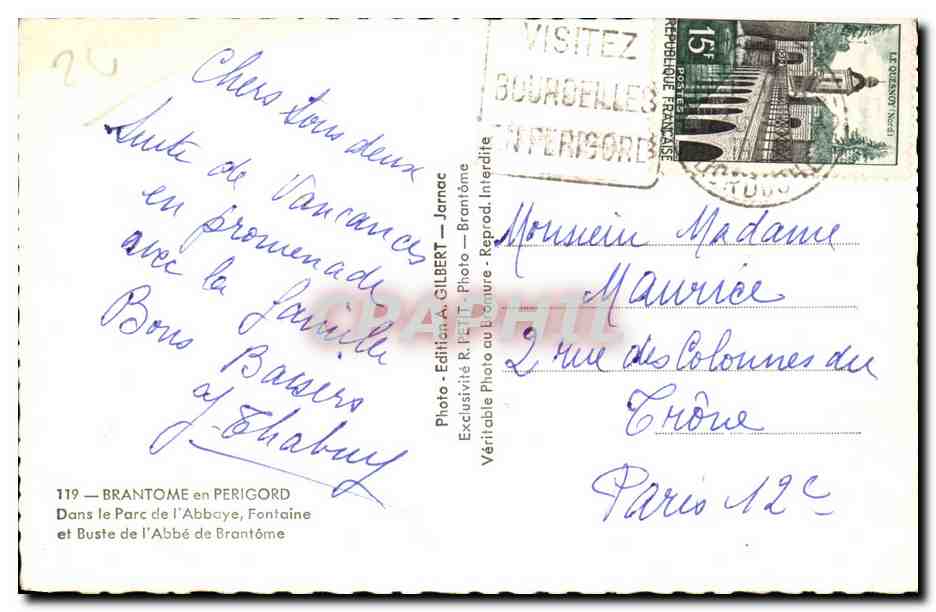 24
Chers tous deux
Suite de Vancances
en promenade
avec la famille
Bons Baisers
119 — BRANTOME en PERIGORD
Dans le Parc de l'Abbaye, Fontaine
et Buste de l'Abbé de Brantôme
Photo - Edition A. GILBERT — Jarnac
Exclusivité R. PETIT - Photo — Brantôme
Véritable Photo au Bromure - Reprod. Interdite
CPAPHIL
VISITEZ
BOURDEILLES
EN PERIGORD
15F
POSTES
REPUBLIQUE FRANÇAISE
LE QUESNOY (Nord)
Monsieur Madame
Maurice
2 rue des Colonnes du
Trône
Paris 12e